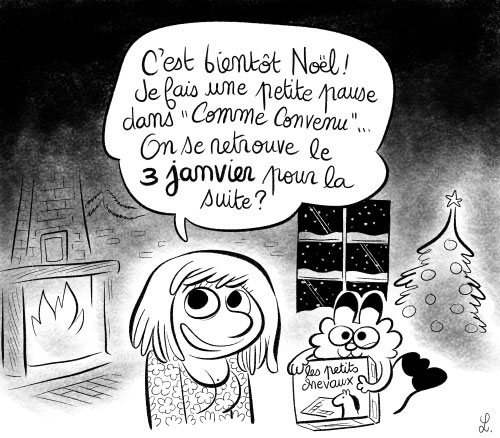 C'est bientôt Noël !
Je fais une petite pause
dans "Comme Convenu"...
On se retrouve le
3 janvier pour la
suite ?
les petits
chevaux
L.